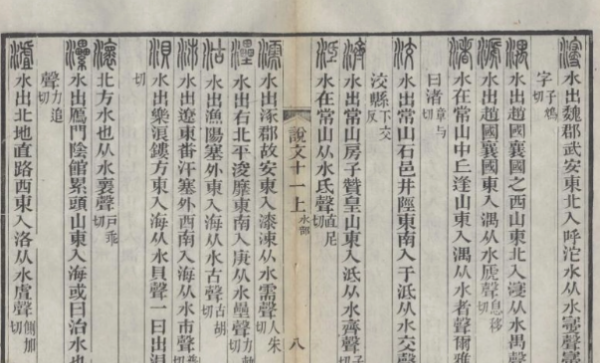 濅水出魏郡武安東北入呼沱水从水㝲聲
字子鴆切
湡水出趙國襄國之西山東北入濅从水禺聲
㴲水出趙國襄國東入湡从水虒聲息移切
渚水在常山中丘逢山東入湡从水者聲爾雅
曰渚章与切
洨水出常山石邑井陘東南入于泜从水交聲
洨縣下交反
濟水出常山房子贊皇山東入泜从水齊聲子
泜水在常山从水氐聲直尼切
說文十一上 水部 八
濡水出涿郡故安東入漆涑从水需聲人朱
灅水出右北平浚靡東南入庚从水壘聲力軌切
沽水出漁陽塞外東入海从水古聲古胡切
沛水出遼東番汗塞外西南入海从水巿聲切
浿水出樂浪鏤方東入海从水貝聲一曰出浿
切
瀤北方水也从水褱聲戶乖切
灅水出鴈門陰館累頭山東入海或曰治水也
聲力追切
瀘水出北地直路西東入洛从水虘聲側加切